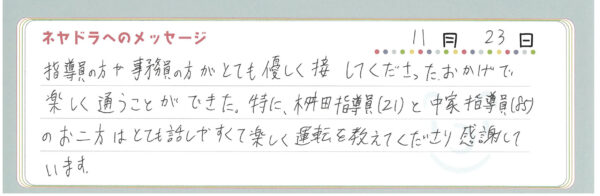 ネヤドラへのメッセージ 11月 23日
指導員の方や事務員の方がとても優しく接してくださったおかげで
楽しく通うことができた。特に、桝田指導員(21)と中家指導員(85)
のお二方はとても話しやすくて楽しく運転を教えてくださり感謝して
います。